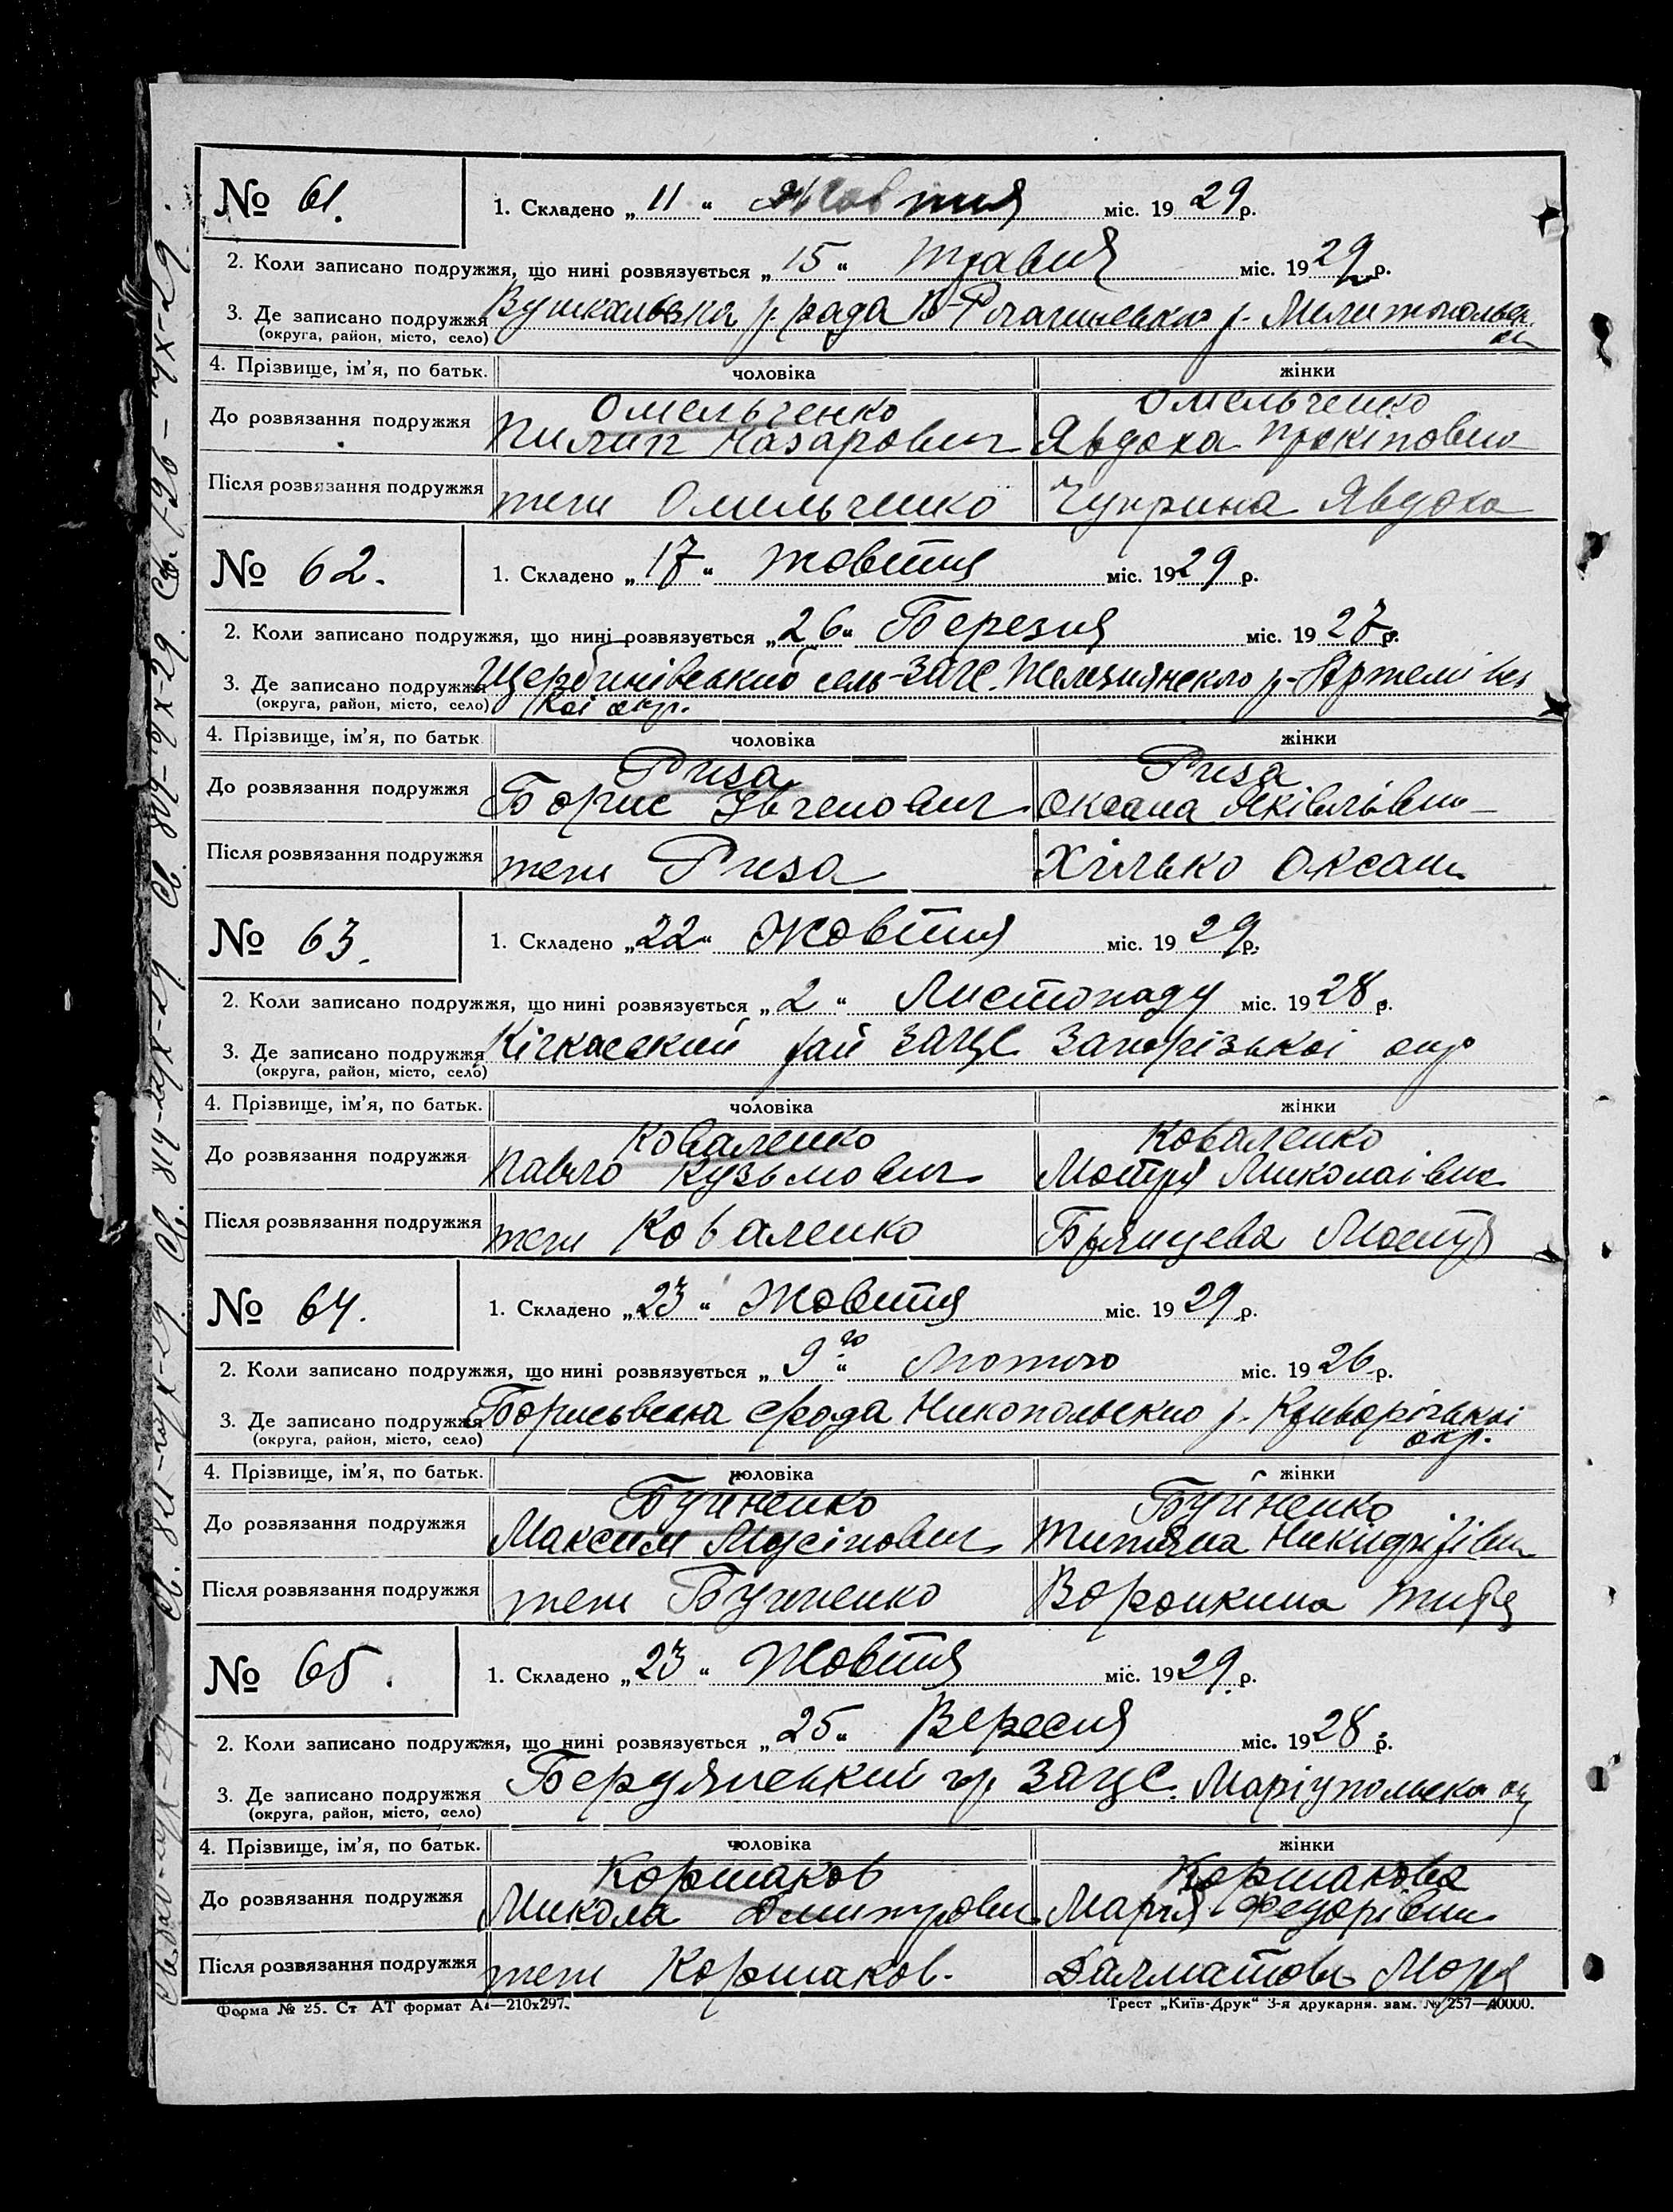 № 61. 1. Складено „11“ Жовтня міс. 1929 р.
2. Коли записано подружжя, що нині розвязується „15“ Травня міс. 1929 р.
3. Де записано подружжя рада р. Мелитопольск.
(округа, район, місто, село)
4. Прізвище, ім’я, по батьк. чоловіка жінки
До розвязання подружжя Омельченко Омельченко
Пилип Назарович Явдоха Прокіповна
Після розвязання подружжя теж Омельченко Чуприна Явдоха
№ 62. 1. Складено „17“ Жовтня міс. 1929 р.
2. Коли записано подружжя, що нині розвязується „26“ Березня міс. 1927 р.
3. Де записано подружжя Щербинівський сель-ЗАГС. р-Артемівсь
(округа, район, місто, село) кої окр.
4. Прізвище, ім’я, по батьк чоловіка жінки
До розвязання подружжя Риза Риза
Борис Оксана Яківлівна
Після розвязання подружжя теж Риза Хілько Оксана
№ 63. 1. Складено „22“ Жовтня міс. 1929 р.
2. Коли записано подружжя, що нині розвязується „2“ Листопаду міс. 1928 р.
3. Де записано подружжя Кічкаський рай ЗАЦС Запорізькоі окр
(округа, район, місто, село)
4. Прізвище, ім’я, по батьк. чоловіка жінки
До розвязання подружжя Коваленко Коваленко
Павло Кузьмович Мотря Миколаівна
Після розвязання подружжя теж Коваленко Брянцева Мотря
№ 64. 1. Складено „23“ Жовтня міс. 1929 р.
2. Коли записано подружжя, що нині розвязується „9го“ Лютого міс. 1926 р.
3. Де записано подружжя с рада Никопольско р. Криворізькоі
(округа, район, місто, село) окр.
4. Прізвище, ім’я, по батьк. чоловіка жінки
До розвязання подружжя Буйненко Буйненко
Максим Мусійович Титяна
Після розвязання подружжя теж Буйненко Воронкина
№ 65. 1. Складено „23“ Жовтня міс. 1929 р.
2. Коли записано подружжя, що нині розвязується „25“ Вересня міс. 1928 р.
3. Де записано подружжя Бердянський ЗАЦС. Маріупольска ок
(округа, район, місто, село)
4. Прізвище, ім’я, по батьк. чоловіка жінки
До розвязання подружжя Коршаков Коршакова
Микола Дмитрович Марія Федорівна
Після розвязання подружжя теж Коршаков. Далматова Марія
Форма № 25. Ст АТ формат А4—210х297. Трест „Київ-Друк“ 3-я друкарня. зам. № 257—40000.